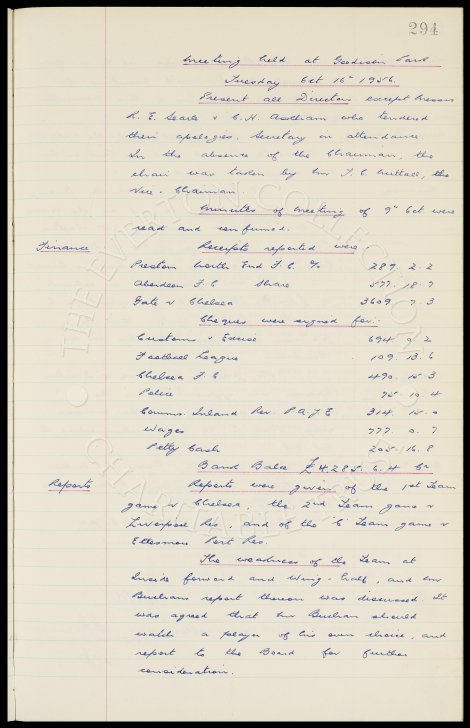 294
Meeting held at Goodison Park
Tuesday Oct 16th 1956.
Present all Directors except Messrs
R. E. Searle & C. H. Askham who tendered
their apologies. Secretary in attendance.
In the absence of the Chairman, the
chair was taken by Mr F. C. Nuttall, the
Vice-Chairman
Minutes of meeting of 9th Oct were
read and confirmed.
Finance Receipts reported were:
Preston North End F.C. 289. 2. 2
Aberdeen F.C Share 577. 18. 7
Gate v Chelsea 3609. 7. 3
Cheques were signed for:-
Customs & Excise 694. 9. 2
Football League 109. 13. 6
Chelsea F.C 490. 15. 3
Police 75. 19. 4
Comms. Inland Rev. P.A.Y.E 314. 15. 0
Wages 777. 0. 7
Petty Cash 205. 16. 8
Bank Balce £4285. 6. 4 Cr
Reports Reports were given of the 1st Team
game v Chelsea, the 2nd Team game v
Liverpool Res, and of the "C" Team game v
Ellesmere Port Res.
The weakness of the Team at
Inside forward and Wing-half, and Mr
Buchans report thereon was discussed. It
was agreed that Mr Buchan should
watch a player of his own choice, and
report to the Board for further
consideration.
THE EVERTON COLLECTION